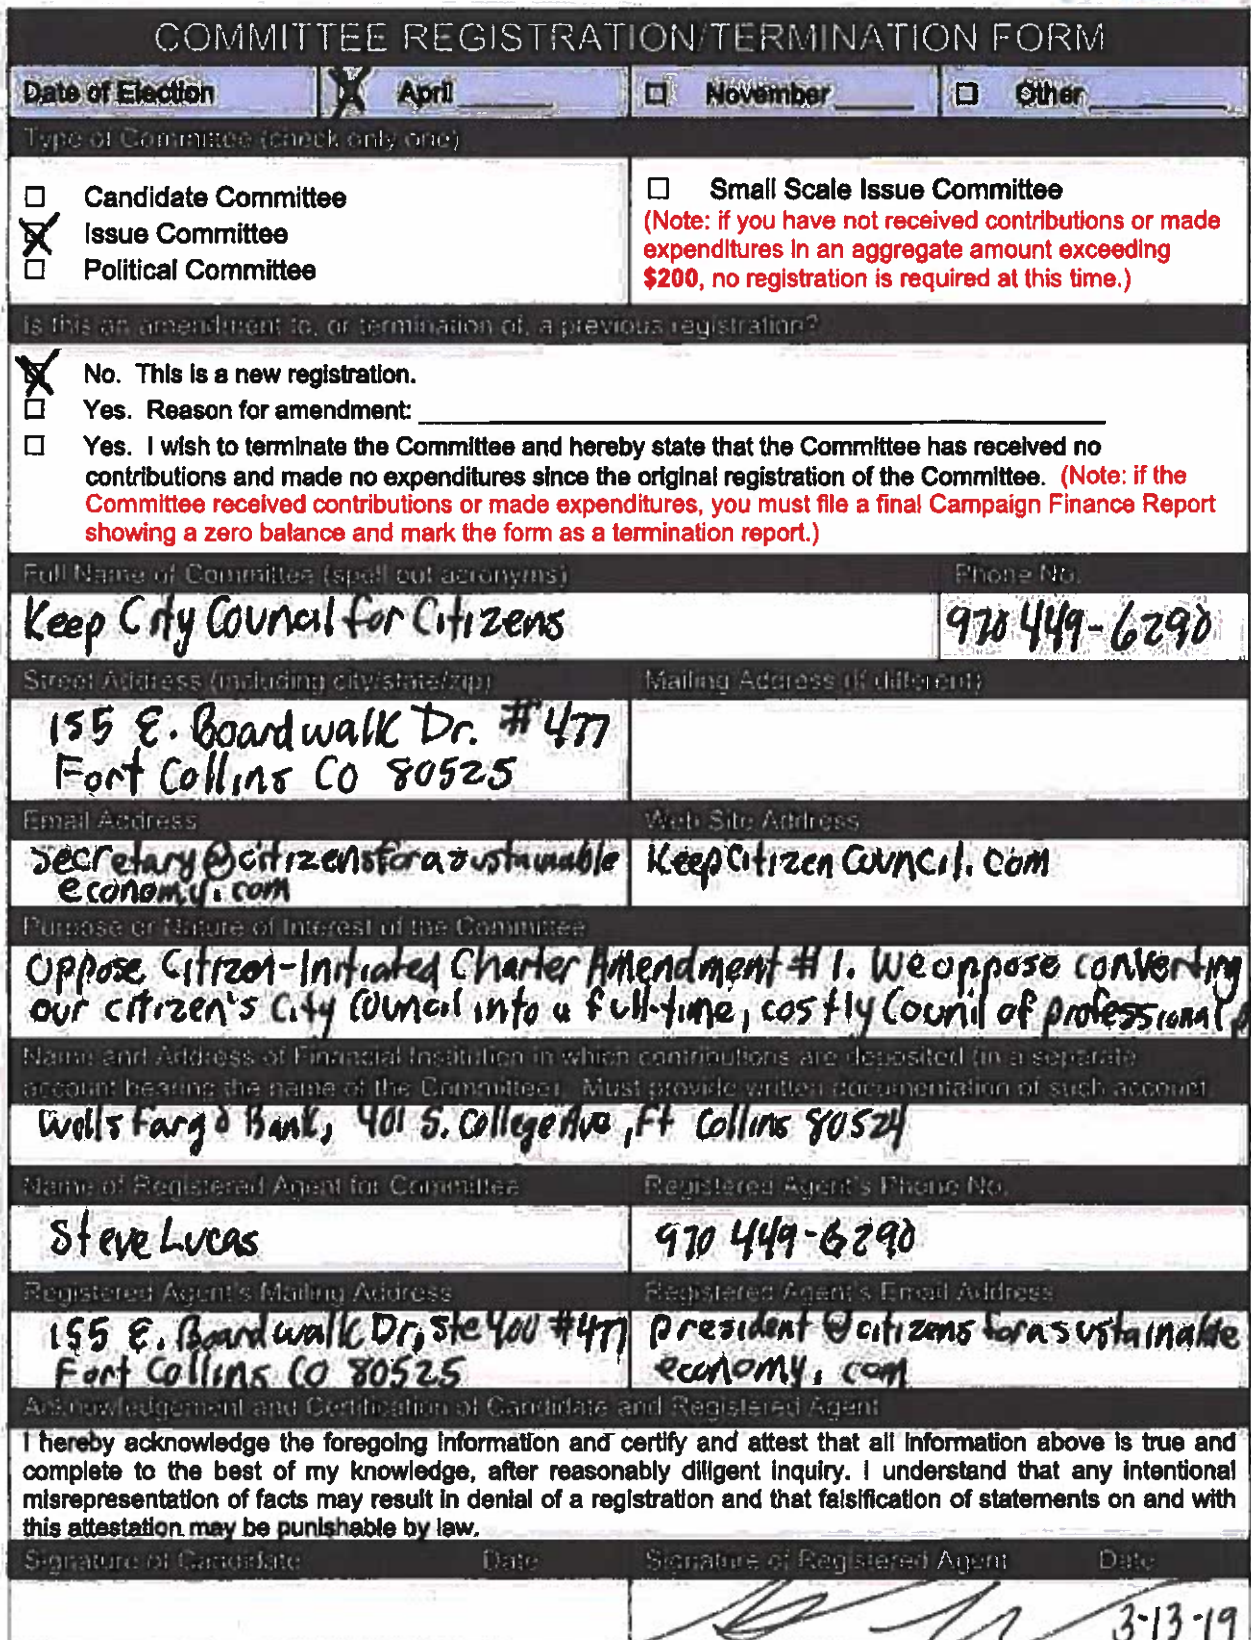 COMMITTEE REGISTRATION/TERMINATION FORM
Date of Election April____ November____ Other____
Type of Committee (check only one)
Candidate Committee
Issue Committee
Political Committee
Small Scale Issue Committee
(Note: if you have not received contributions or made
expenditures in an aggregate amount exceeding
$200, no registration is required at this time.)
Is this an amendment to, or termination of, a previous registration?
No. This is a new registration.
Yes. Reason for amendment: ____
Yes. I wish to terminate the Committee and hereby state that the Committee has received no
contributions and made no expenditures since the original registration of the Committee. (Note: if the
Committee received contributions or made expenditures, you must file a final Campaign Finance Report
showing a zero balance and mark the form as a termination report.)
Full Name of Committee (spell out acronyms) Phone No.
Keep City Council for Citizens 970 449-6290
Street Address (including city/state/zip) Mailing Address (if different)
155 E. Boardwalk Dr. #477
Fort Collins CO 80525
Email Address Web Site Address
secretary@citizensforasustainable KeepCitizenCouncil.com
economy.com
Purpose or Nature of Interest of the Committee
Oppose Citizen-Initiated Charter Amendment #1. We oppose converting
our citizen's City Council into a full-time, costly Counil of professional p
Name and Address of Financial Institution in which contributions are deposited (in a separate
account bearing the name of the Committee). Must provide written documentation of such account
Wells Fargo Bank, 401 S. College Ave, Ft Collins 80524
Name of Registered Agent for Committee Registered Agent's Phone No.
Steve Lucas 970 449-6290
Registered Agent's Mailing Address Registered Agent's Email Address
155 E. Boardwalk Dr, Ste 400 #477 president@citizensforasustainable
Fort Collins CO 80525 economy.com
Acknowledgement and Certification of Candidate and Registered Agent
I hereby acknowledge the foregoing information and certify and attest that all information above is true and
complete to the best of my knowledge, after reasonably diligent inquiry. I understand that any intentional
misrepresentation of facts may result in denial of a registration and that falsification of statements on and with
this attestation may be punishable by law.
Signature of Candidate Date Signature of Registered Agent Date
3-13-19